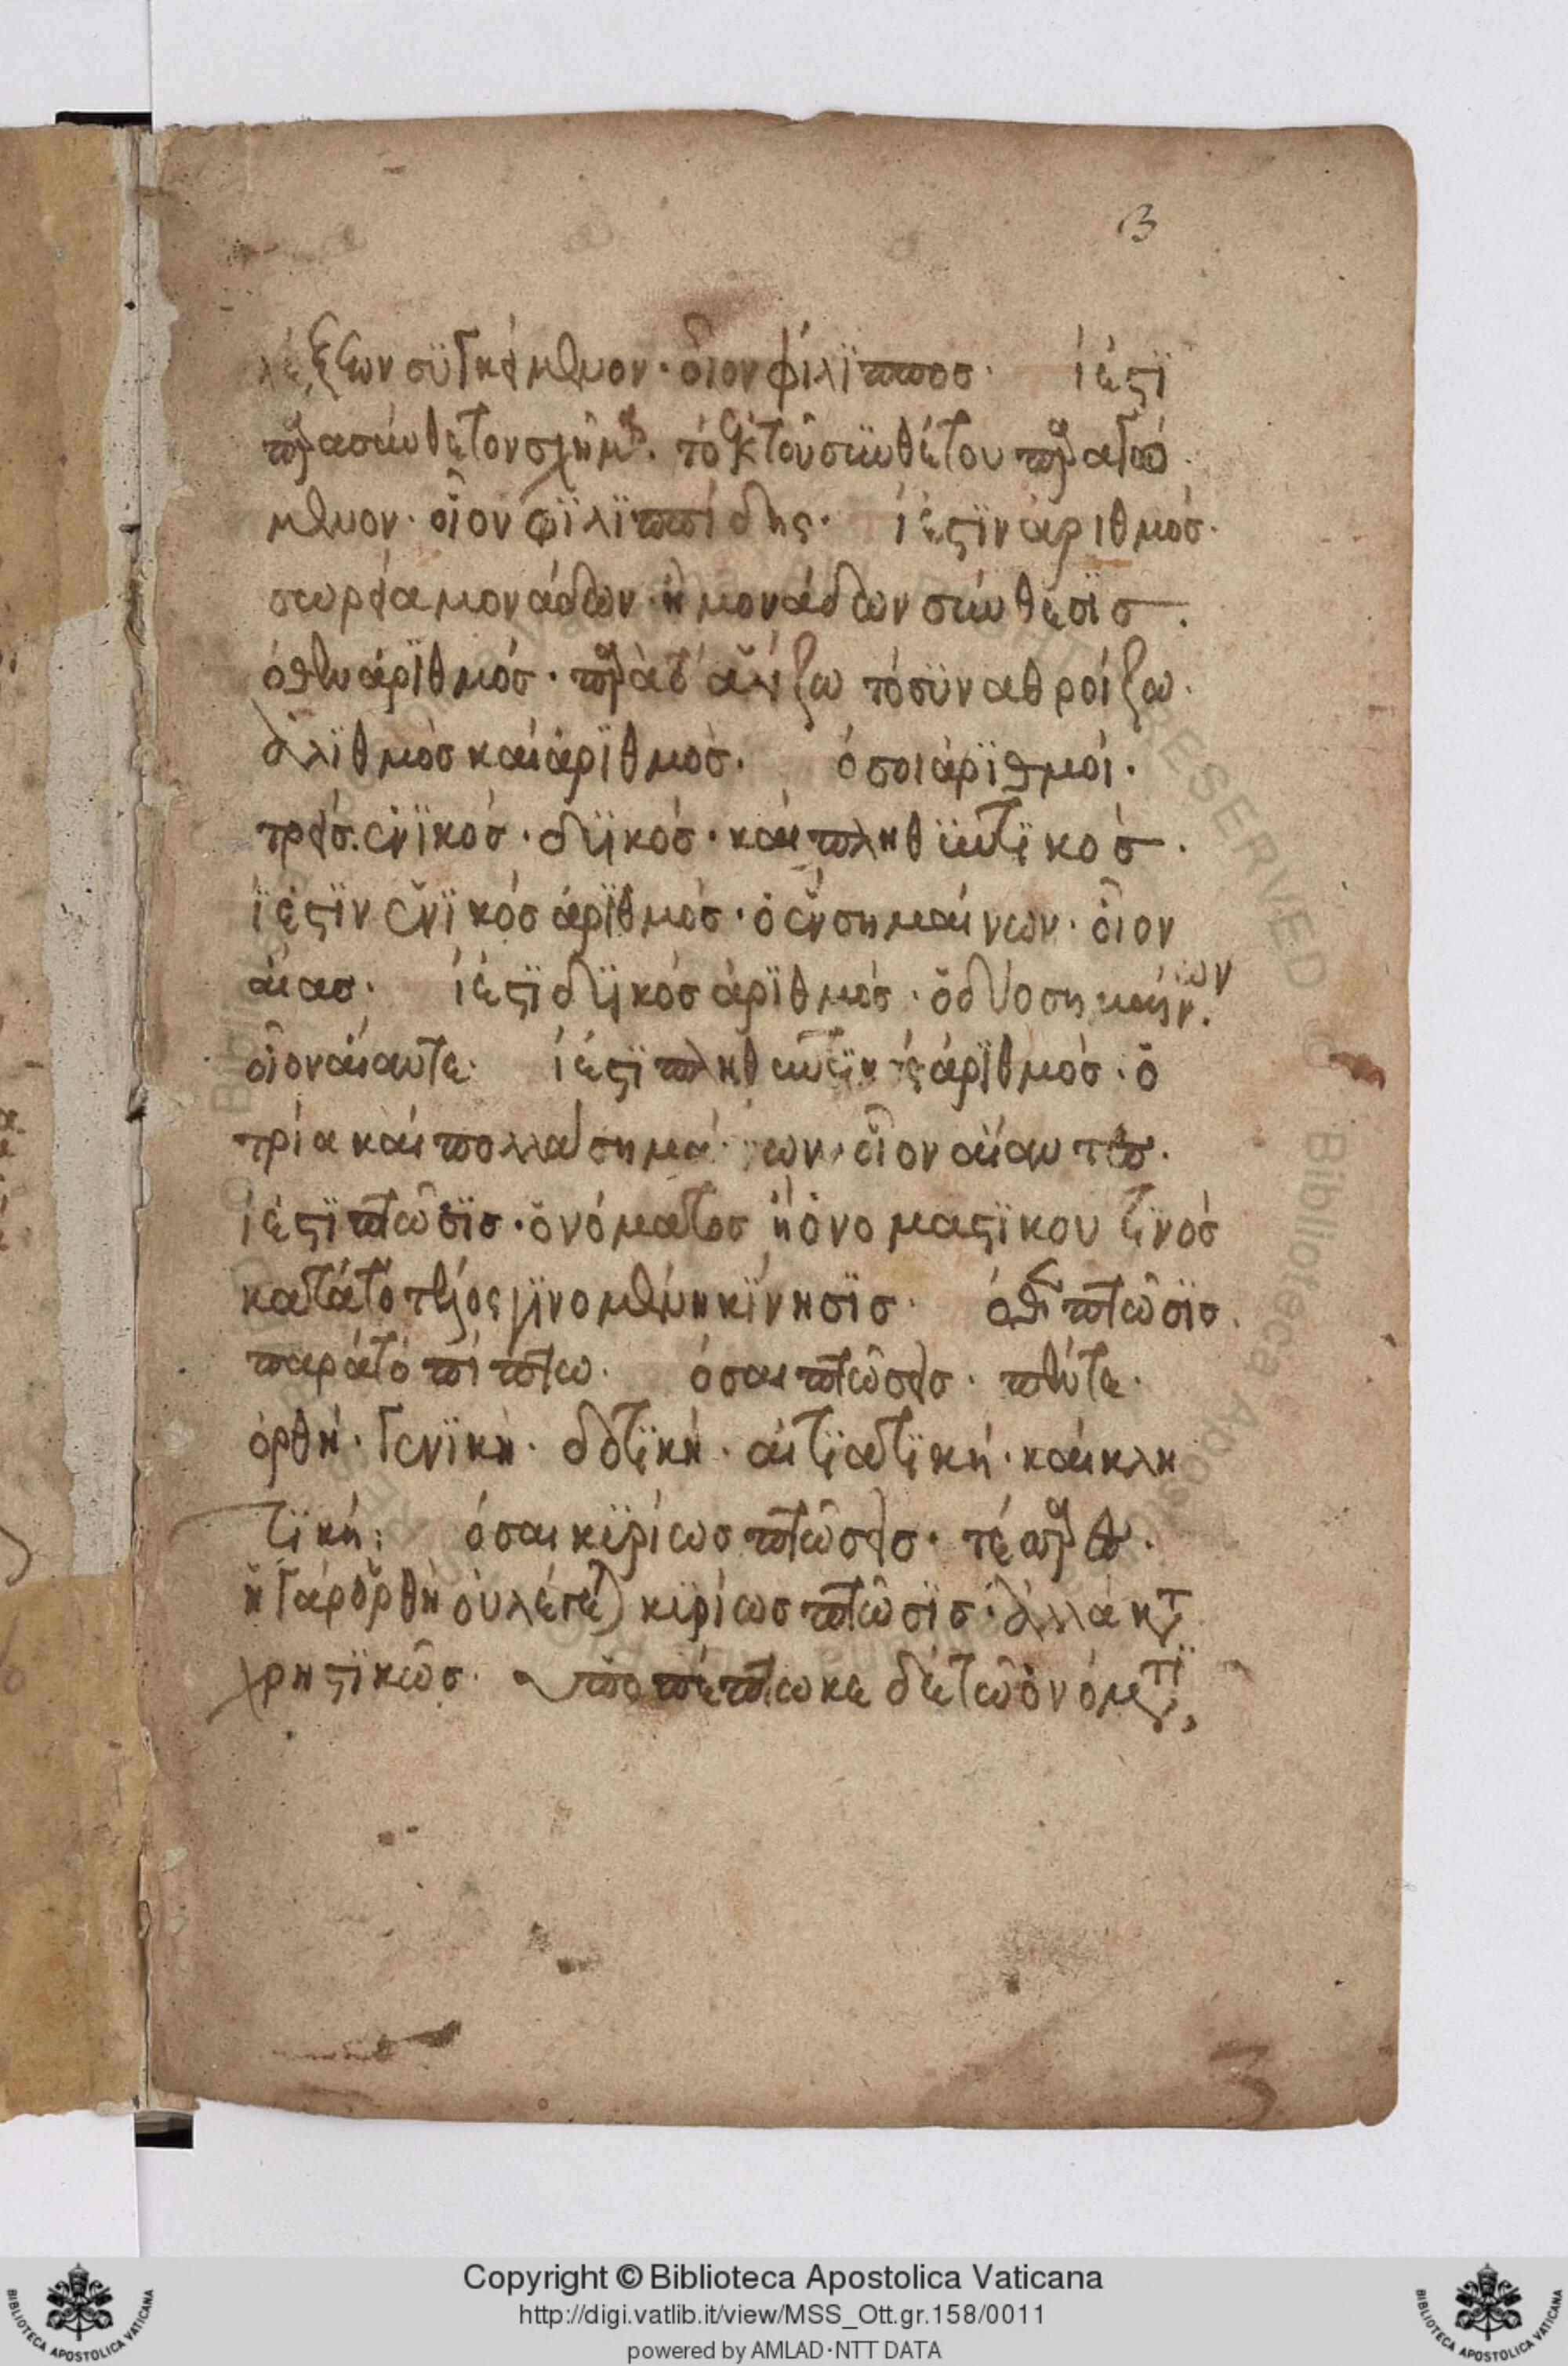 β
λέξεων συγκείμενον· οἷον φίλϊππος· ϊ ἐστϊ
παρασύνθετον σχῆμα· τὸ ἐκ τοῦ συνθέτου παραγό
μενον· οἷον φϊλϊππίδης· ϊ ἐστϊν ἀριθμός·
σωρεία μονάδων· ἢ μονάδων σύνθεσϊς·
ὅθεν ἀρϊθμός· παρὰ τ' ἀλίζω τὸ σϋναθροίζω·
ἀλϊθμὸς καὶ ἀρϊθμὸς· πόσοι ἀρϊθμοί·
τρεῖς· ἑνϊκός· δϋϊκός· καὶ πληθϋντϊκός·
ϊ ἐστϊν ἑνϊκὸς ἀρϊθμὸς· ὁ ἓν σημαίνων· οἷον
αἴας· ϊ ἐστϊ δϋϊκὸς ἀρϊθμός· ὁ δύο σημαίνων·
οἷον αἴαντε· ϊ ἐστϊ πληθυντϊκὸς ἀρϊθμός· ὁ
τρία καὶ πολλὰ σημαίνων· οἷον αἴαντες·
ϊ ἐστϊ πτῶσϊς· ὀνόματος ἢ ὀνομαστϊκου τϊνὸς
κατὰ τὸ τέλος γϊνομένη κίνησϊς· ὅθεν πτῶσϊς
παρὰ τὸ πίπτω· πόσαι πτώσεις· πέντε·
ὀρθὴ· γενϊκὴ· δοτϊκὴ· αἰτϊατϊκή· καὶ κλη
τϊκή: πόσαι κυρίως πτώσεις· τέσσαρες·
ἡ γὰρ ὀρθὴ οὐ λέγεται κυρίως πτῶσϊς· ἀλλὰ κατα
χρηστϊκῶς· ὑποπέπτωκε δὲ τῶ ὀνόματϊ,
3
Copyright © Biblioteca Apostolica Vaticana
http://digi.vatlib.it/view/MSS_Ott.gr.158/0011
powered by AMLAD·NTT DATA